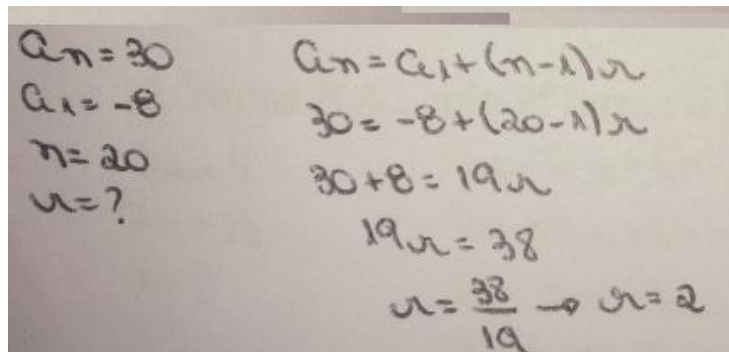 an = 30
a1 = -8
n = 20
r = ?
an = a1 + (n-1)r
30 = -8 + (20-1)r
30 + 8 = 19r
19r = 38
r = 38/19 → r = 2